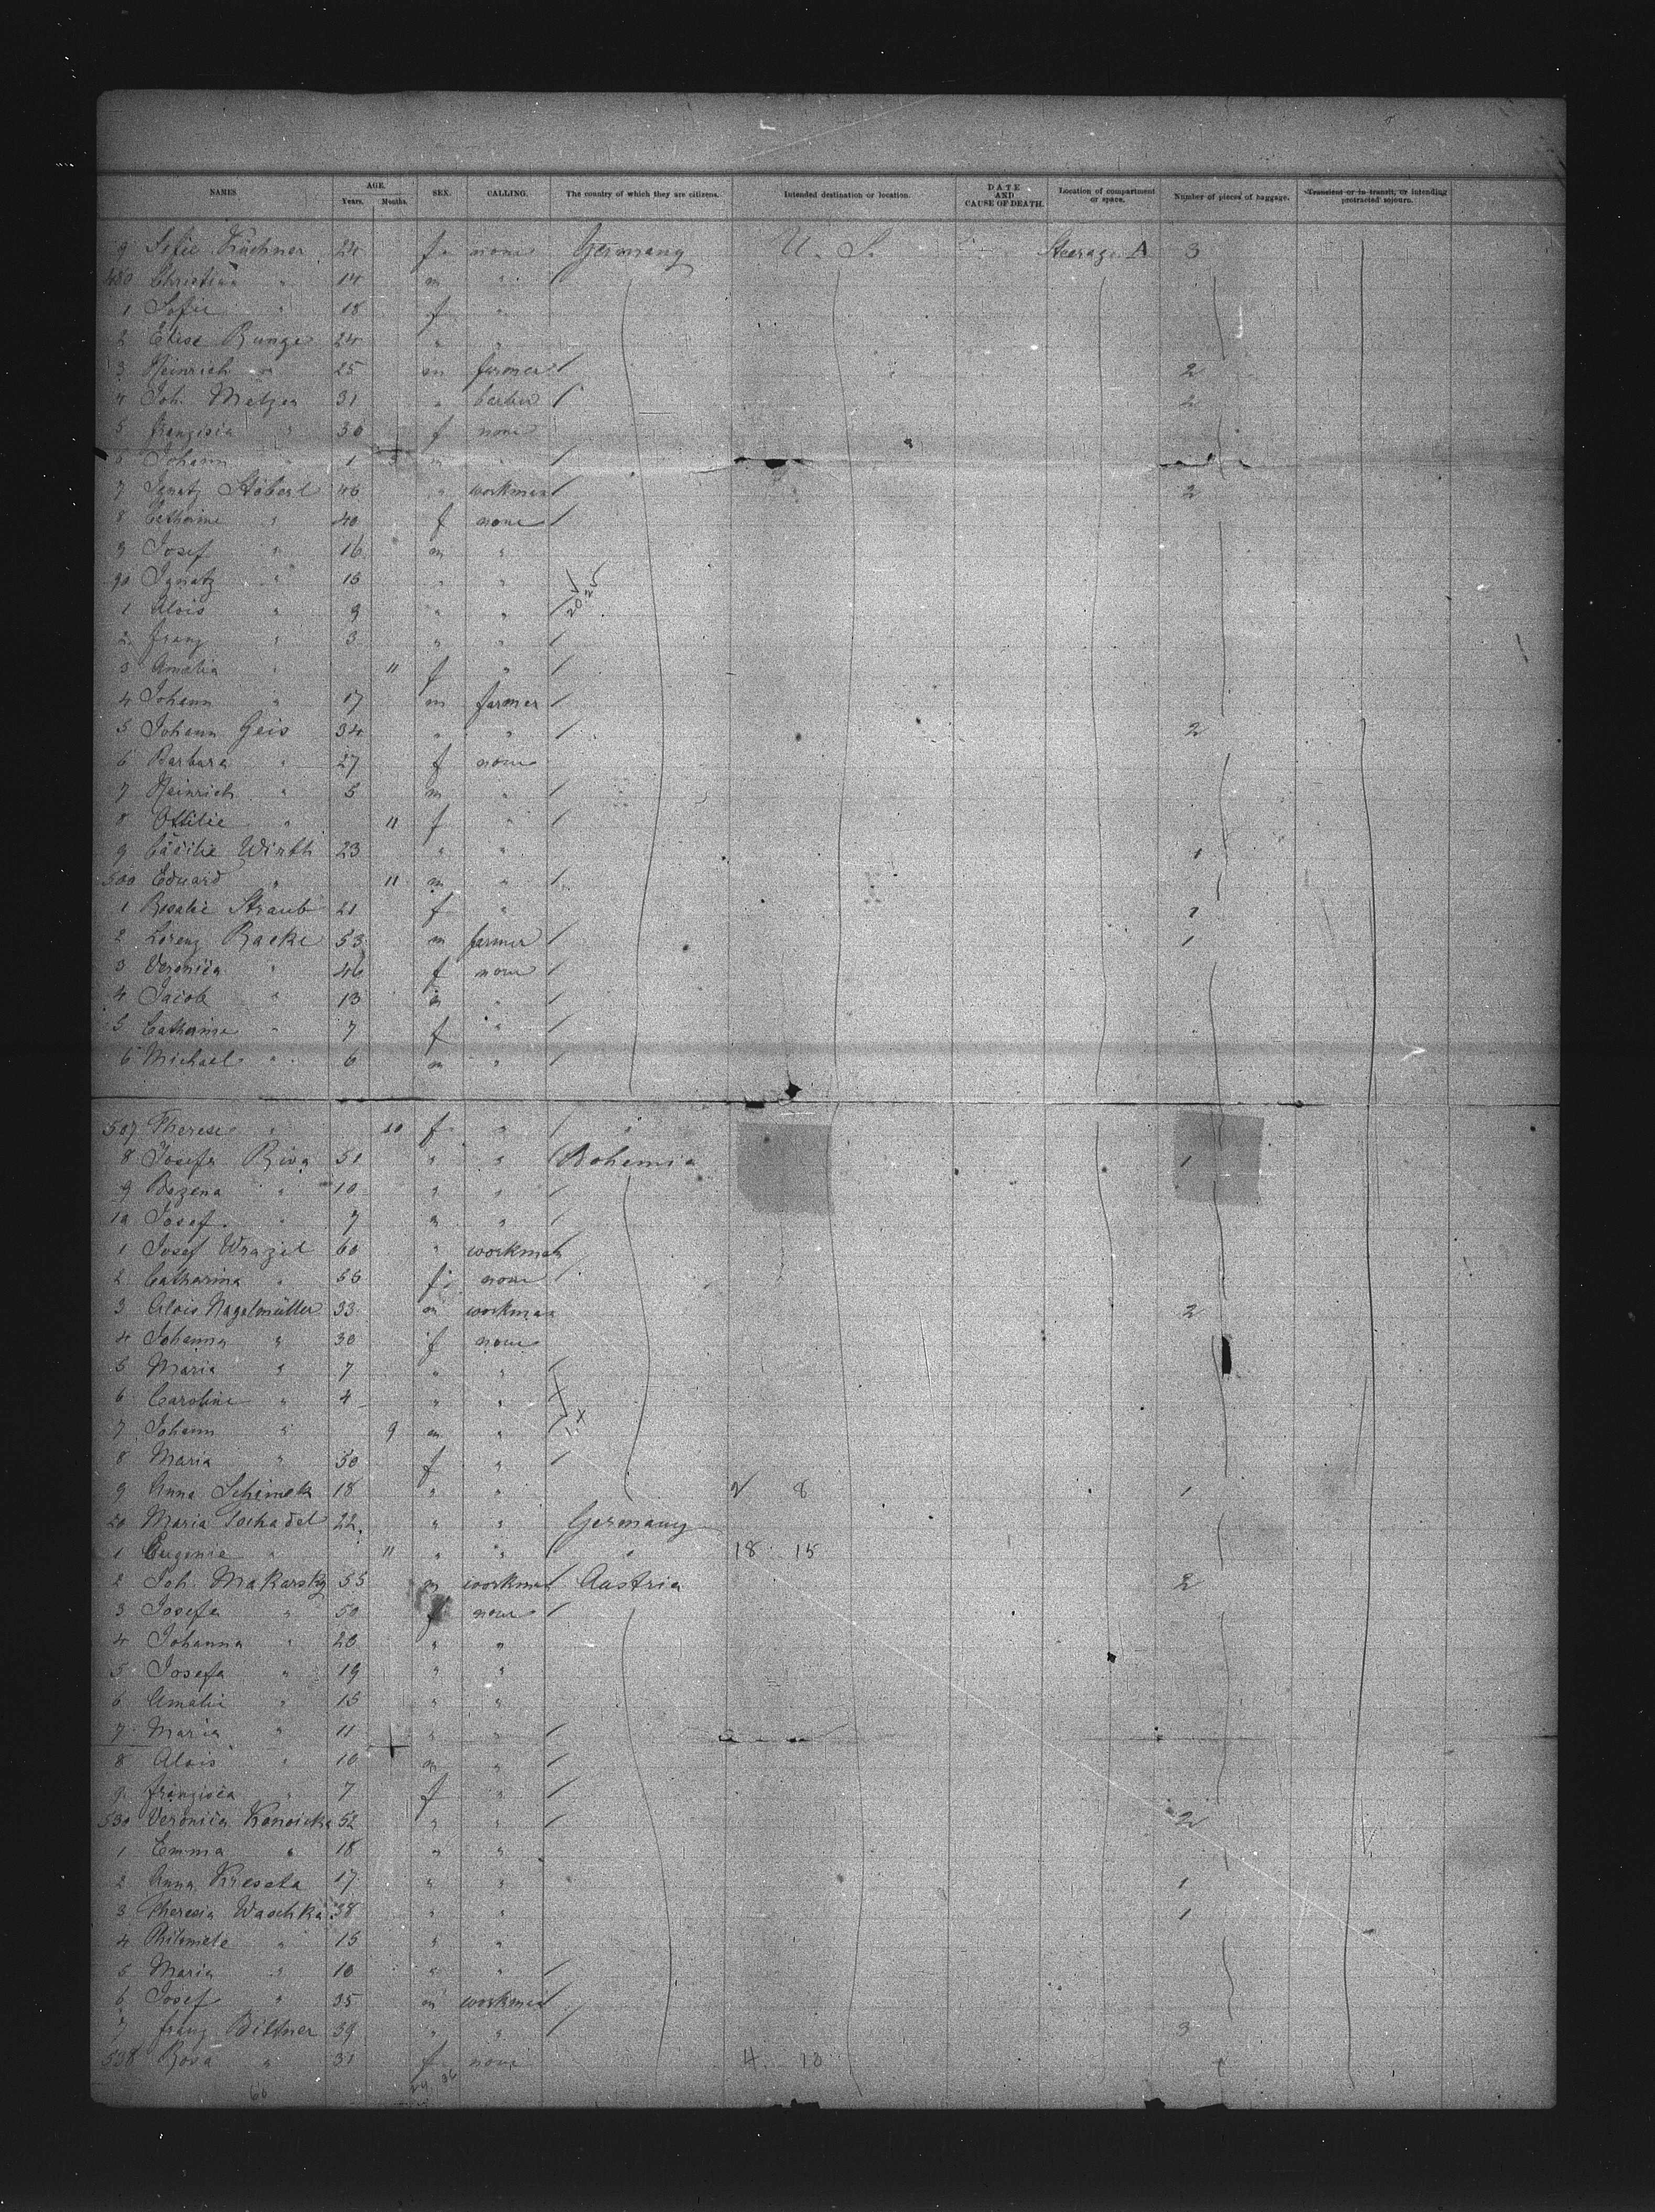 NAMES. AGE. Years. Months. SEX. CALLING. The country of which they are citizens. Intended destination or location. DATE AND CAUSE OF DEATH. Location of compartment or space. Number of pieces of baggage. Transient or in transit, or intending protracted sojourn.
9 Sofie Küchner 24 f none Germany U. S. Steerage A 3
480 Christian " 14 m "
1 Sofie " 18 f "
2 Elise Runge 24 " "
3 Heinrich " 25 m farmer / 2
4 Joh. Metzer 31 " barber / 2
5 Franzisca " 30 f none
6 Johann " 1 m " /
7 Ignatz Stöberl 46 " workman / 2
8 Catharine " 40 f none /
9 Josef " 16 m "
90 Ignatz " 13 " "
1 Alois " 9 " " /
2 Franz " 3 " " /
3 Amalia " 11 f " /
4 Johann " 17 m farmer /
5 Johann Geis 34 " " / 2
6 Barbara " 27 f none
7 Heinrich " 5 m " /
8 Ottilie " 11 f " /
9 Cäcilie Wirth 23 " " 1
500 Eduard " 11 m " /
1 Rosalie Straub 21 f " 1
2 Lorenz Racke 53 m farmer / 1
3 Veronica " 46 f none /
4 Jacob " 13 m " /
5 Catharina " 7 f " /
6 Michael " 6 m " /
507 Therese " 10 f " / "
8 Josefa 51 " " / Bohemia 1
9 Bozena " 10 " " /
10 Josef " 7 m " /
1 Josef Wrazil 60 " workman
2 Catharina " 55 f none /
3 Alois Nagelmüller 33 m workman 2
4 Johanna " 30 f none
5 Maria " 7 " " /
6 Caroline " 4 " " /
7 Johann " 9 m " /
8 Maria " 50 f " /
9 Anna Schimek 18 " " 2 8 1
20 Maria Sochadel 22 " " Germany
1 Eugenie " 11 " " / " 18 15
2 Joh. Makarsky 55 m workman / Austria 2
3 Josefa " 50 f none /
4 Johanna " 20 " "
5 Josefa " 19 " "
6 Amalie " 15 " "
7 Maria " 11 " " /
8 Alois " 10 m " /
9 Franzisca " 7 f " /
530 Veronica 52 " " / 2
1 Emma " 18 " "
2 Anna Kreseta 17 " " 1
3 Theresia Waschka 38 " " 1
4 Philomele " 15 " "
5 Maria " 10 " " /
6 Josef " 35 m workman /
7 Franz Bittner 39 " " / 3
538 Rosa " 31 f none 4 10
60 24 36